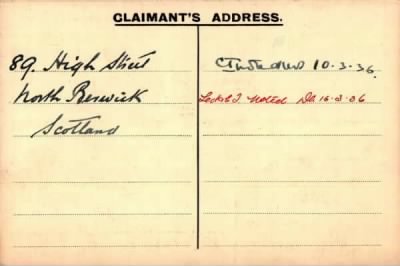 CLAIMANT'S ADDRESS.
89. High Street
North Berwick
Scotland
10.3.36.
Noted